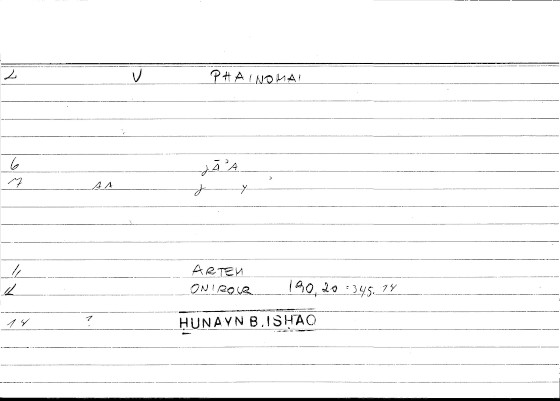 2 V PHAINOMAI
6 ǧĀʾA
7 AA ǧ Y ʾ
11 ARTEM
12 ONIROCR 190,20 = 345.14
14 ? HUNAYN B. ISHAQ